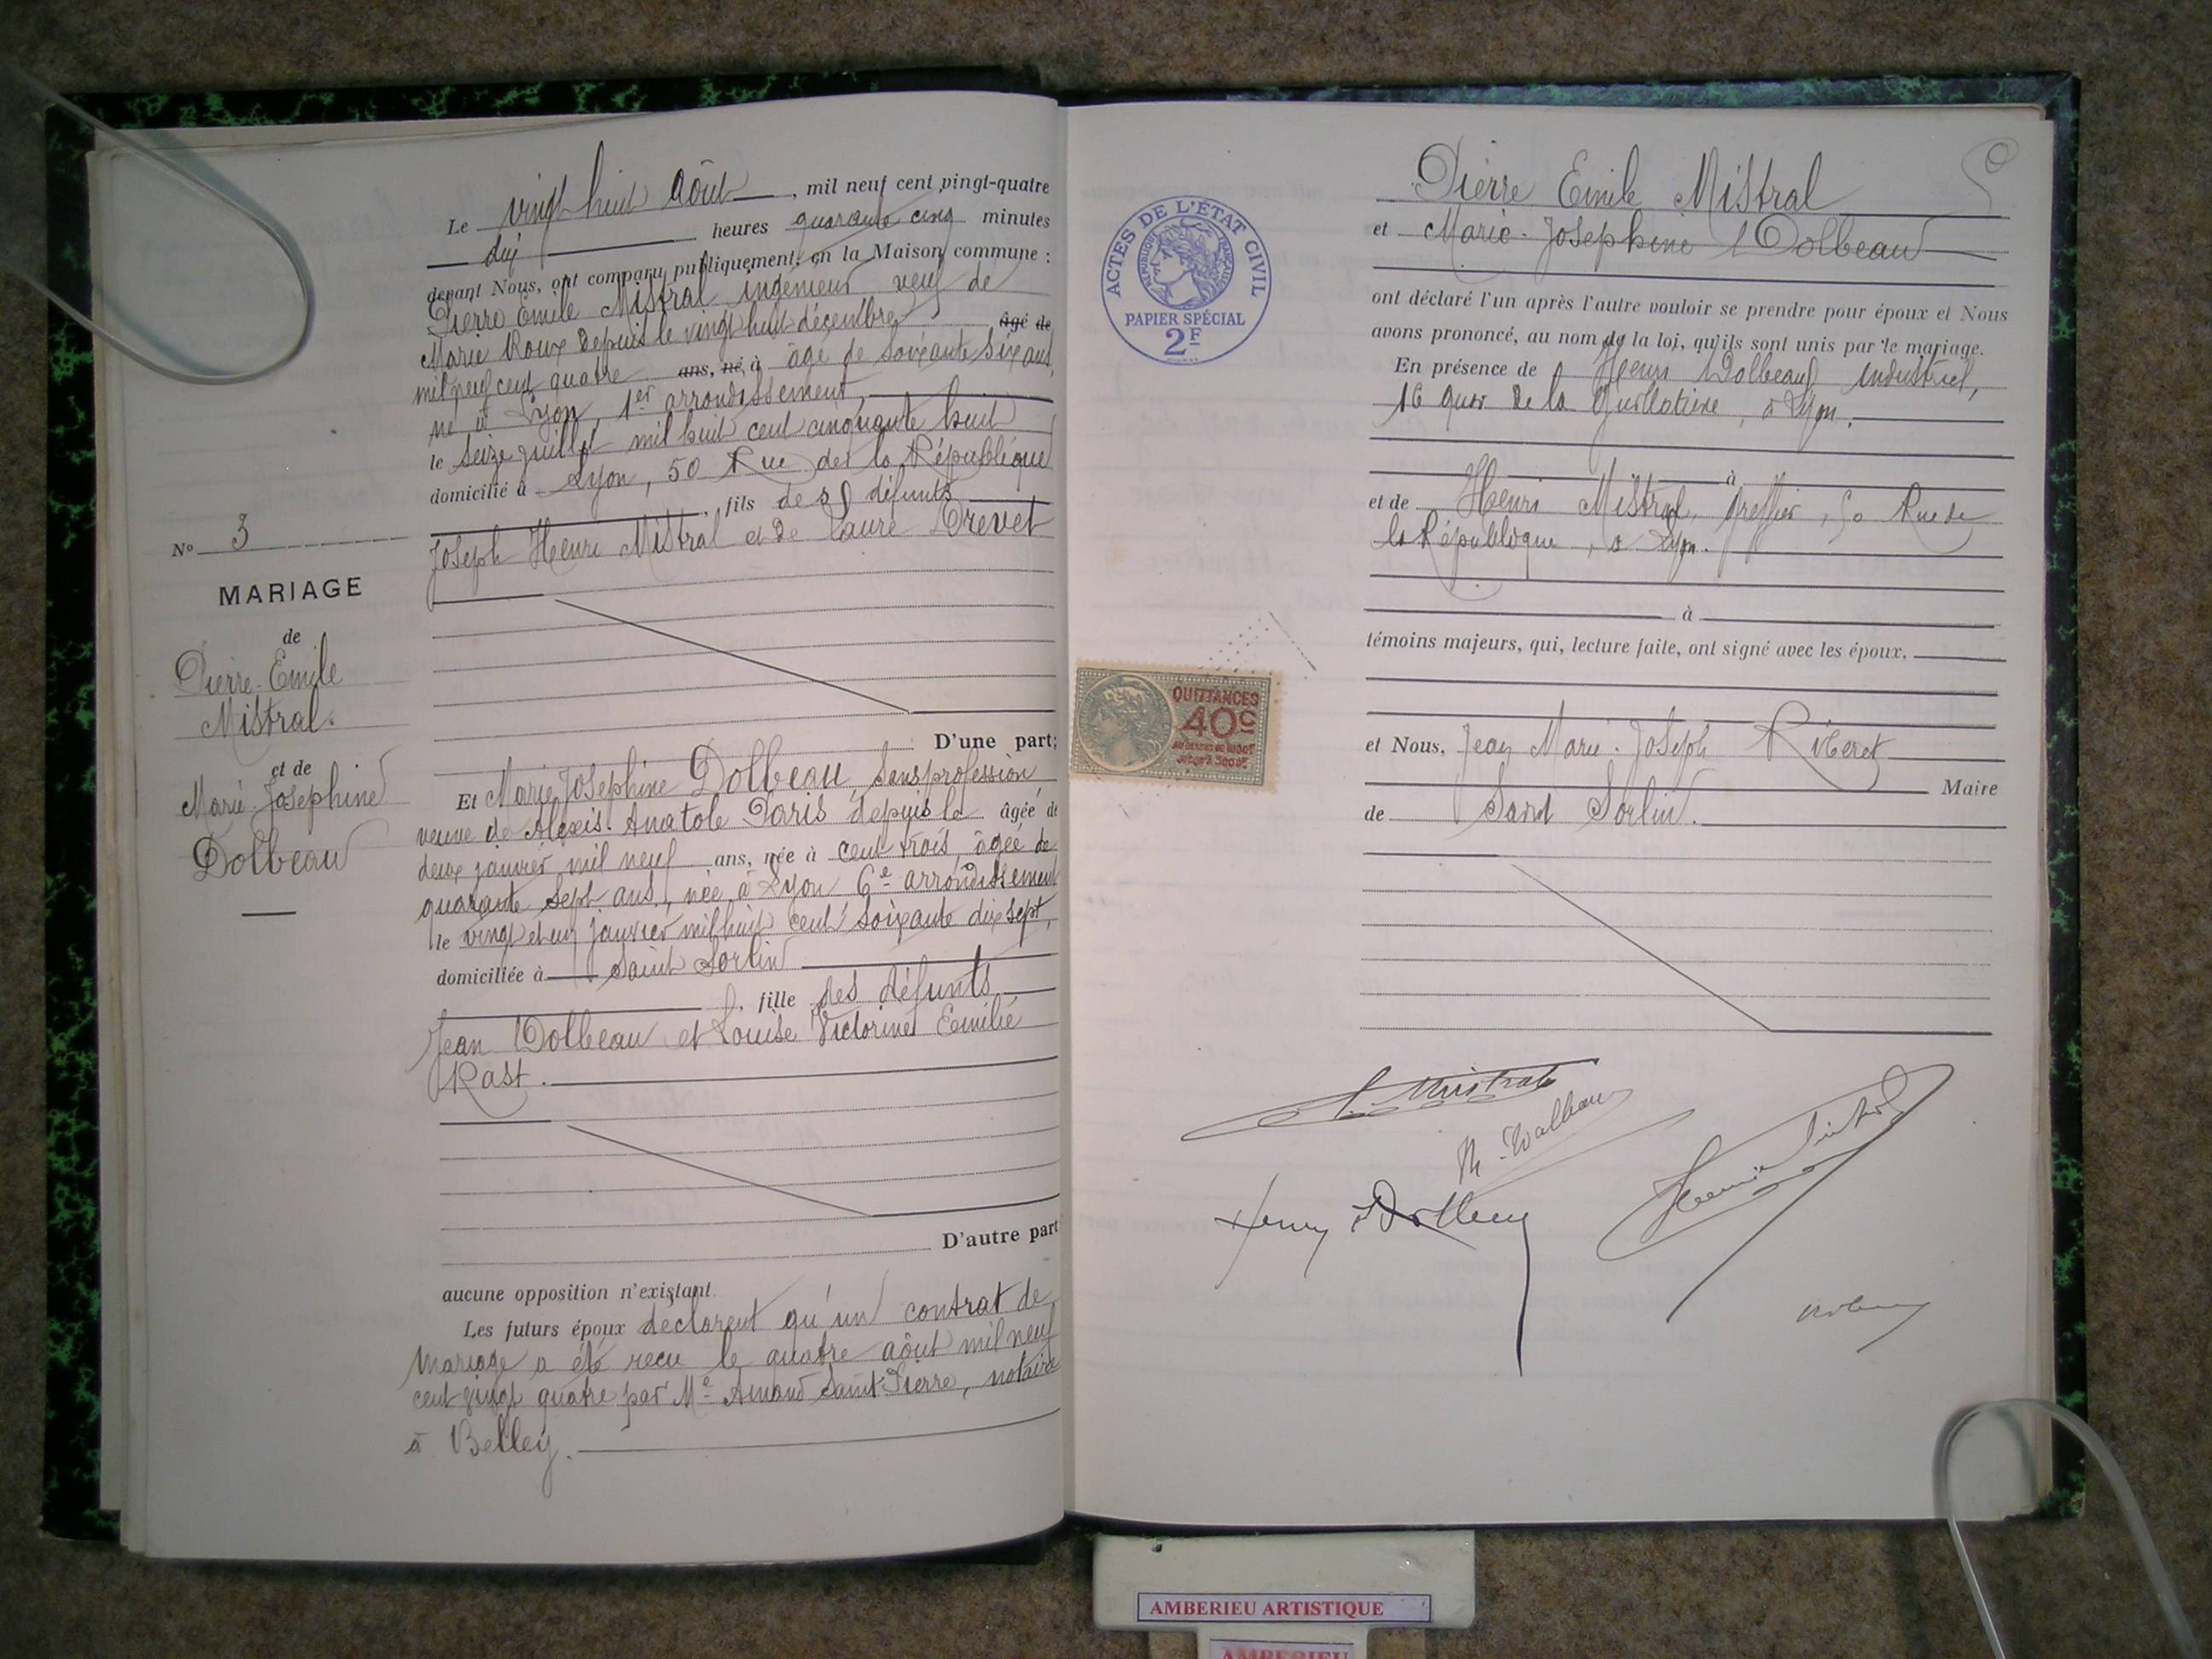 N° 3
MARIAGE
de
Pierre-Emile
Mistral.
et de
Marie-Josephine
Dolbeau
Le vingt huit Août, mil neuf cent vingt-quatre
dix heures quarante cinq minutes
devant Nous, ont comparu publiquement, en la Maison commune :
Pierre Emile Mistral ingénieur veuf de
Marie Roux depuis le vingt huit décembre âgé de
mil neuf cent quatre ans, né à âgé de soixante six ans,
né à Lyon, 1er arrondissement,
le seize juillet mil huit cent cinquante huit
domicilié à Lyon, 50 Rue de la République
, fils des défunts
Joseph Henri Mistral et de Laure Drevet
D'une part;
Et Marie Josephine Dolbeau sans profession
veuve de Alexis-Anatole Paris depuis le âgée de
deux janvier mil neuf ans, née à cent trois, âgée de
quarante sept ans, née à Lyon 6e arrondissement
le vingt et un janvier mil huit cent soixante dix sept,
domiciliée à Saint Sorlin
, fille des défunts
Jean Dolbeau et Louise Victorine Emilie
Rast.
D'autre part
aucune opposition n'existant.
Les futurs époux déclarent qu'un contrat de
mariage a été reçu le quatre août mil neuf
cent vingt quatre par Me Amand Saint-Pierre, notaire
à Belley.
ACTES DE L'ÉTAT CIVIL
RÉPUBLIQUE FRANÇAISE
PAPIER SPÉCIAL
2F
QUITTANCES
40c
Pierre Emile Mistral
et Marie-Josephine Dolbeau
ont déclaré l'un après l'autre vouloir se prendre pour époux et Nous
avons prononcé, au nom de la loi, qu'ils sont unis par le mariage.
En présence de Henri Dolbeau Industriel,
16 quai de la Guillotière, à Lyon.
à
et de Henri Mistral, Greffier, 50 Rue de
la République, à Lyon.
à
témoins majeurs, qui, lecture faite, ont signé avec les époux.
et Nous, Jean Marie-Joseph Riberet
Maire
de Saint Sorlin.
Mistral
Henry Dolbeau
AMBERIEU ARTISTIQUE
AMBERIEU